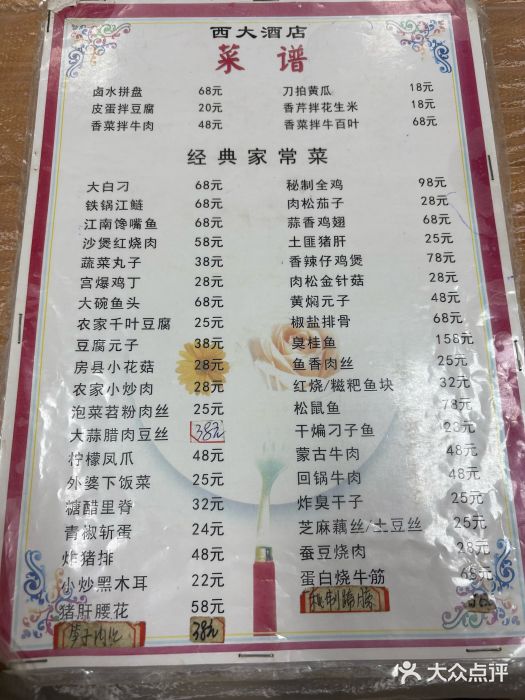 西大酒店
菜谱
卤水拼盘 68元 刀拍黄瓜 18元
皮蛋拌豆腐 20元 香芹拌花生米 18元
香菜拌牛肉 48元 香菜拌牛百叶 68元
经典家常菜
大白刁 68元 秘制全鸡 98元
铁锅江鲢 68元 肉松茄子 28元
江南馋嘴鱼 68元 蒜香鸡翅 68元
沙煲红烧肉 58元 土匪猪肝 25元
蔬菜丸子 38元 香辣仔鸡煲 78元
宫爆鸡丁 28元 肉松金针菇 28元
大碗鱼头 68元 黄焖元子 48元
农家千叶豆腐 25元 椒盐排骨 68元
豆腐元子 38元 臭桂鱼 158元
房县小花菇 28元 鱼香肉丝 25元
农家小炒肉 28元 红烧/糍粑鱼块 32元
泡菜苕粉肉丝 25元 松鼠鱼 78元
大蒜腊肉豆丝 38元 干煸刁子鱼 28元
柠檬凤爪 48元 蒙古牛肉 48元
外婆下饭菜 25元 回锅牛肉 48元
糖醋里脊 32元 炸臭干子 25元
青椒斩蛋 24元 芝麻藕丝/土豆丝 25元
炸猪排 48元 蚕豆烧肉 28元
小炒黑木耳 22元 蛋白烧牛筋 65元
猪肝腰花 58元 秘制蹄膀
38元
大众点评